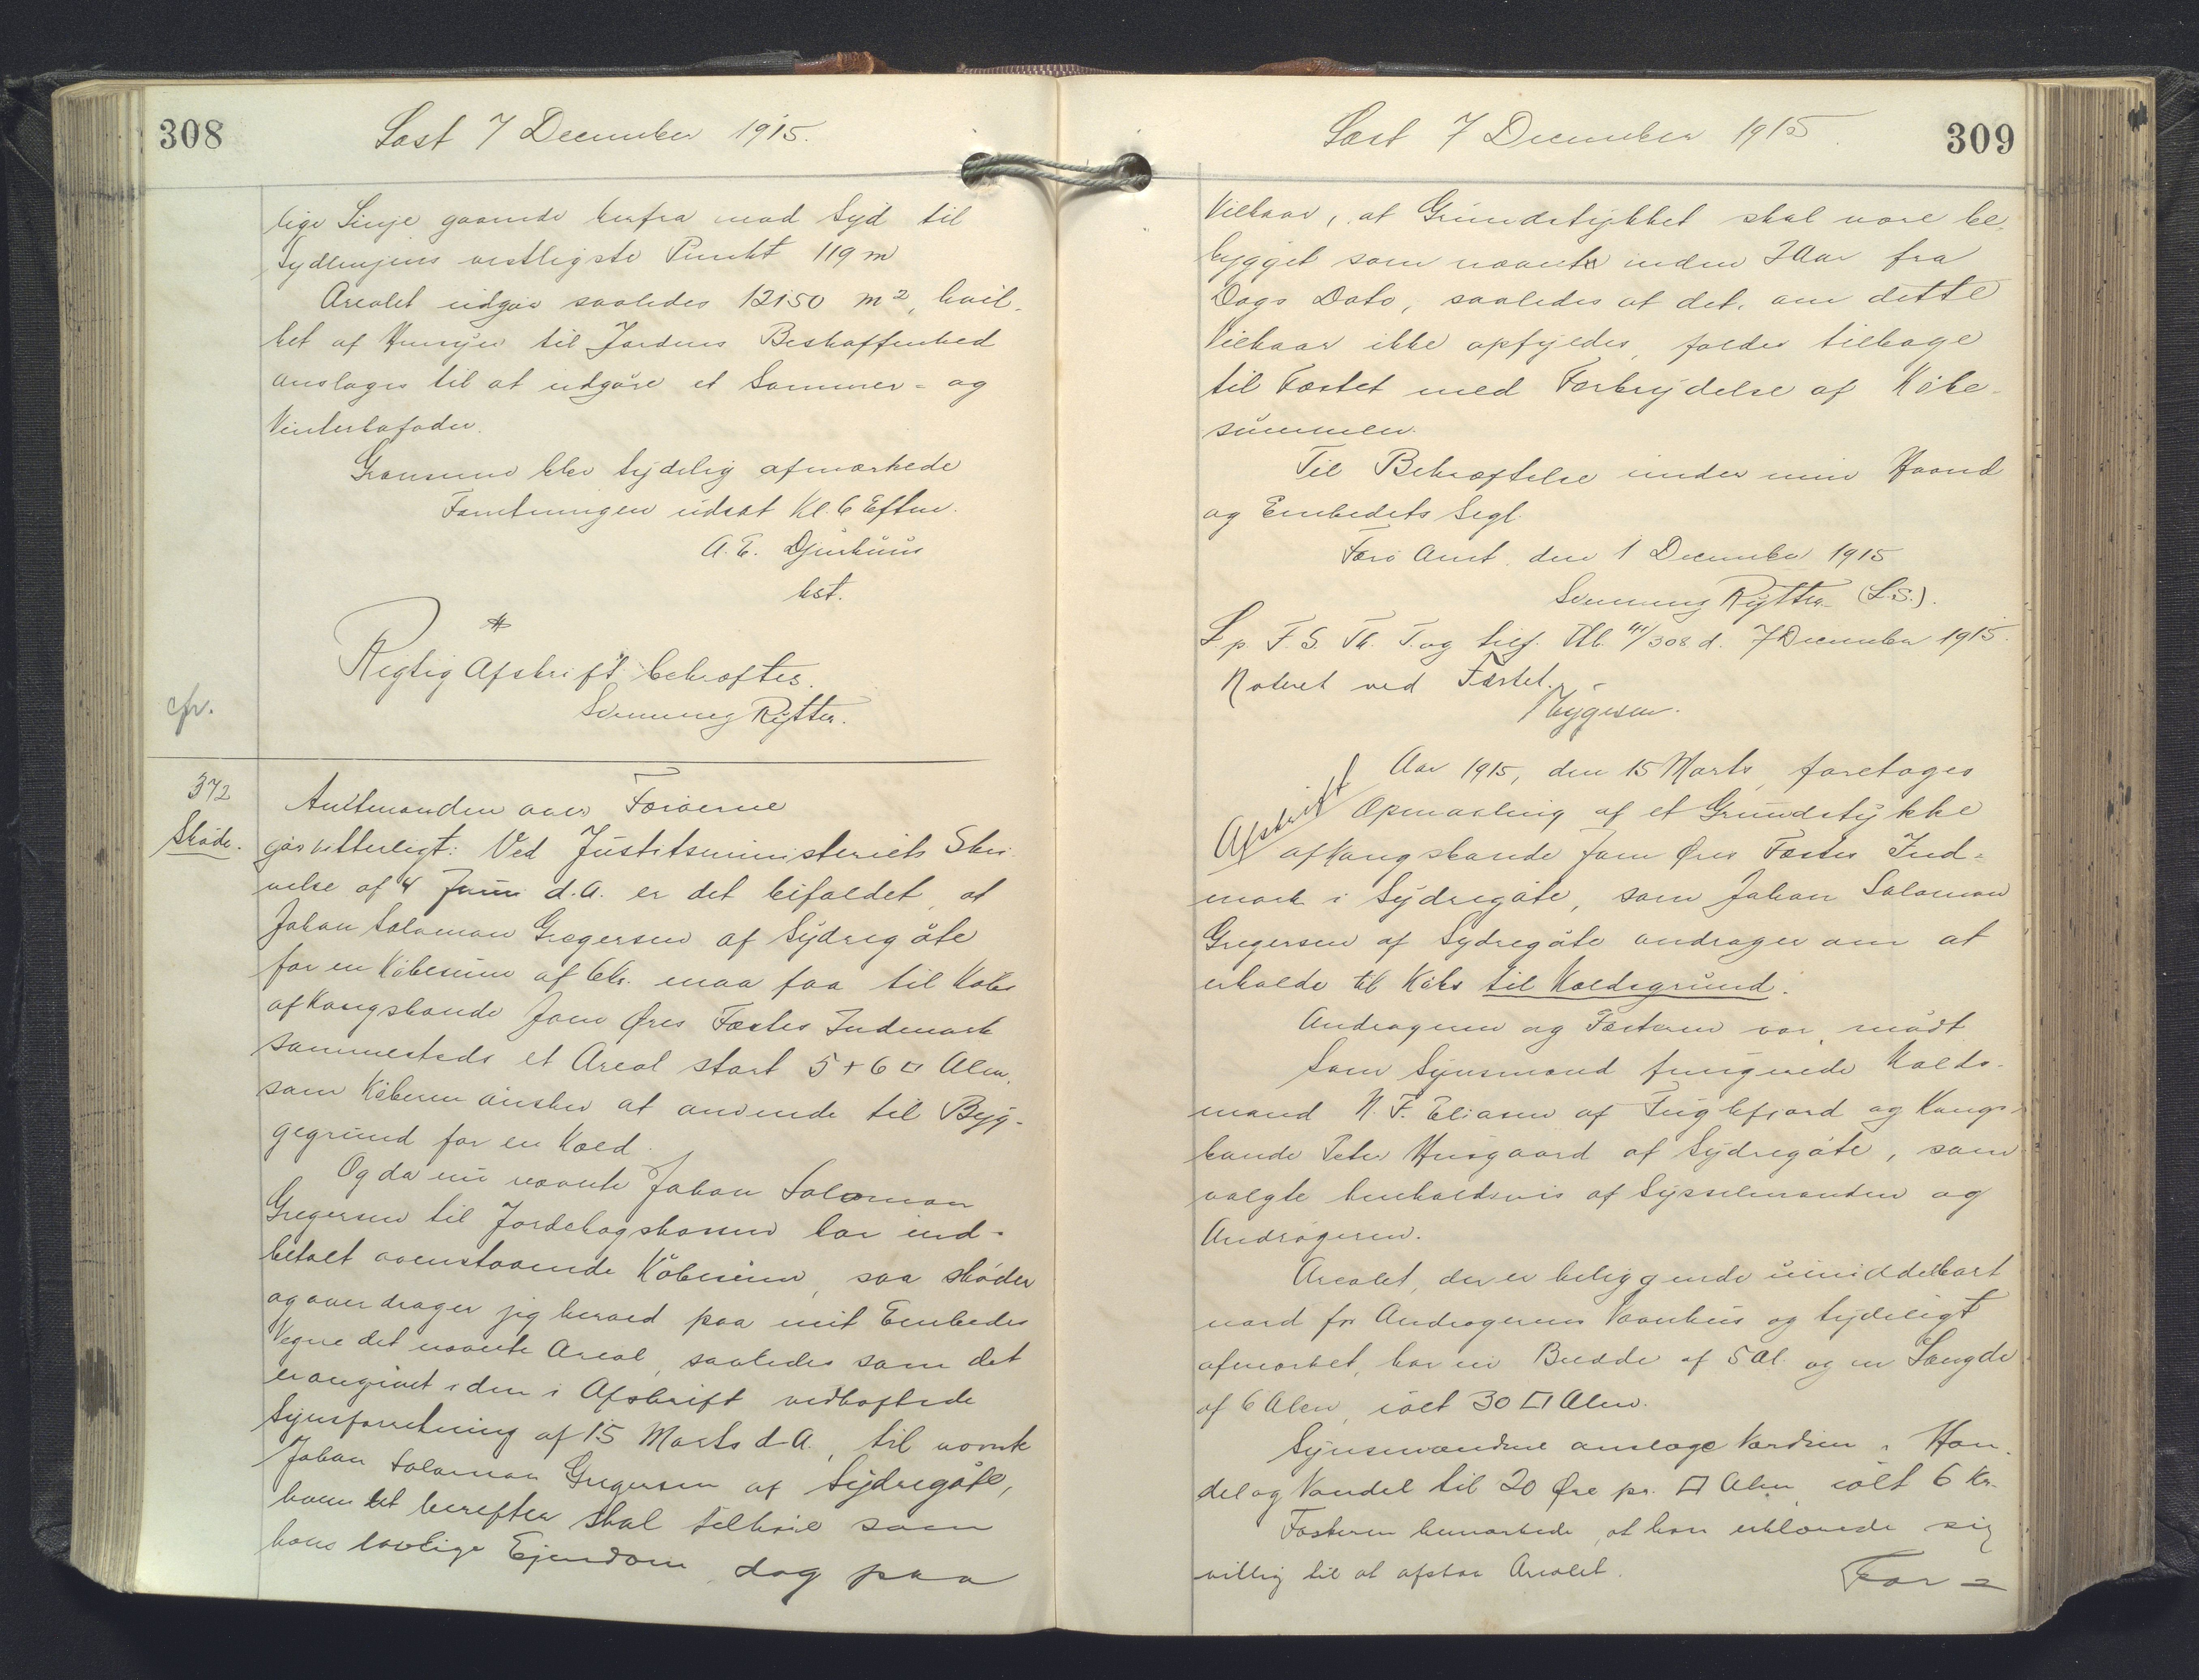 308
Læst 7 December 1915.
lige Linje gaaende herfra mod Syd til
Sydlinjens vestligste Punkt 119 m
Arealet udgør saaledes 12150 m², hvil-
ket af Hensyn til Jordens Beskaffenhed
anslages til at udgøre et Sommer- og
Vinterkofoder.
Grænserne blev tydelig afmærkede
Forretningen udsat Kl. 6 Eftm.
A. E. Djurhuus
kst.
Rigtig Afskrift bekræftes.
Svenning Rytter.
cfr.
372
Skøde.
Amtmanden over Færøerne
gør vitterligt: Ved Justitsministeriets Skri-
velse af 4 Juni d.A. er det bifaldet, at
Johan Salomon Gregersen af Sydregøte
for en Købesum af 6 Kr. maa faa til Købs
af Kongsbonde Joen Øres Fæstes Indmark
sammesteds et Areal stort 5 + 6 □ Alen,
som Køberen ønsker at anvende til Byg-
gegrund for en Kæld.
Og da nu nævnte Johan Salomon
Gregersen til Jordebogskassen har ind-
betalt ovenstaaende Købesum, saa skøder
og overdrager jeg herved paa mit Embedes
Vegne det nævnte Areal, saaledes som det
er angivet i den i Afskrift vedhæftede
Synsforretning af 15 Marts d.A., til nævnte
Johan Salomon Gregersen af Sydregøte,
hvem det herefter skal tilhøre som
hans lovlige Ejendom, dog paa
Læst 7 December 1915.
309
Vilkaar, at Grundstykket skal være be-
bygget som nævnte inden 2 Aar fra
Dags Dato, saaledes at det, om dette
Vilkaar ikke opfyldes, falder tilbage
til Fæstet med Forbrydelse af Købe-
summen.
Til Bekræftelse under min Haand
og Embedets Segl.
Færø Amt, den 1 December 1915
Svenning Rytter (L.S.).
L p. F. S. Th. T. og tilf. Tlb. 11/308 d. 7 December 1915.
Noteret ved Fæstet.
Tygesen.
Afskrift
Aar 1915, den 15 Marts, foretoges
Opmaaling af et Grundstykke
af Kongsbonde Joen Øres Fæstes Ind-
mark i Sydregøte, som Johan Salomon
Gregersen af Sydregøte andrager om at
erholde til Købs til Kældegrund.
Andrageren og Fæsteren var mødt
Som Synsmænd fungerede Valds-
mand N. F. Eliasen af Fuglefjord og Kongs-
bonde Peter Husgaard af Sydregøte, som
valgte henholdsvis af Sysselmanden og
Andrageren.
Arealet, der er beliggende umiddelbart
nord for Andragerens Vaanhus og tydeligt
afmærket, har en Bredde af 5 Al. og en Længde
af 6 Alen, ialt 30 □ Alen.
Synsmændene anslog Værdien i Han-
del og Vandel til 20 Øre pr. □ Alen, ialt 6 Kr.
Fæsteren bemærkede, at han erklærede sig
villig til at afstaa Arealet.
For=